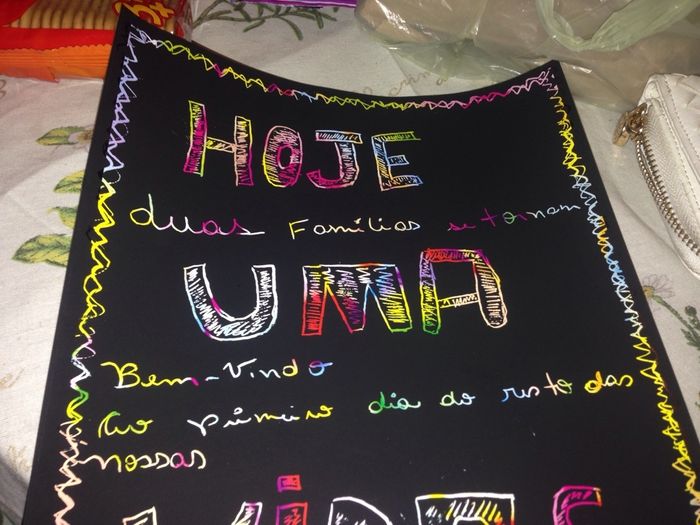 HOJE
duas Famílias se tornam
UMA
Bem-Vindo
Ao primeiro dia do resto das
nossas
VIDAS